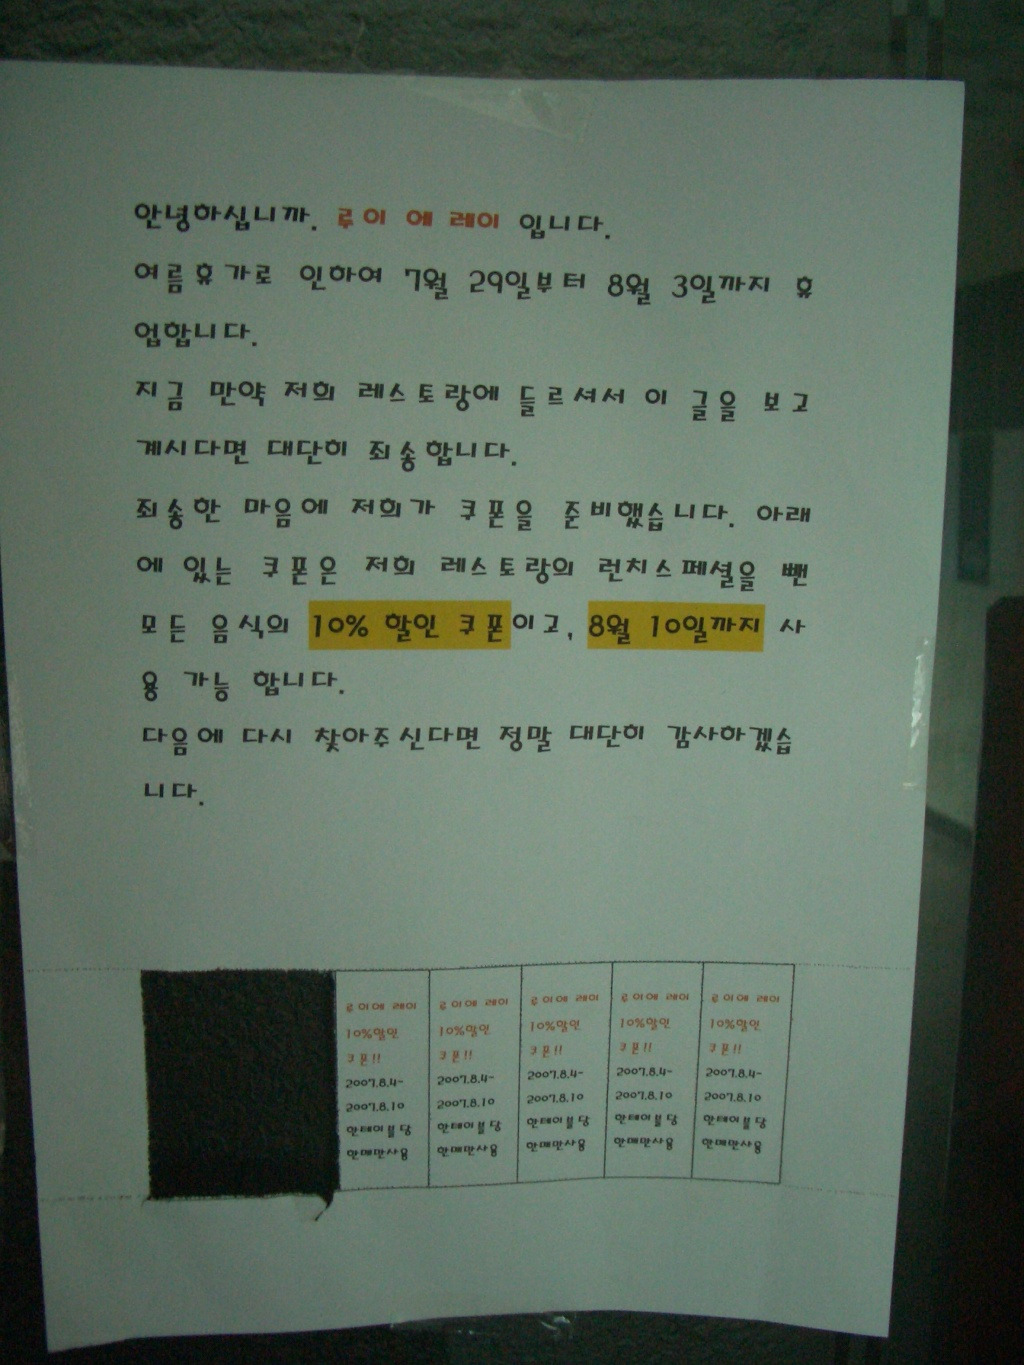 안녕하십니까. 루이 에 레이 입니다.
여름휴가로 인하여 7월 29일부터 8월 3일까지 휴
업합니다.
지금 만약 저희 레스토랑에 들르셔서 이 글을 보고
계시다면 대단히 죄송합니다.
죄송한 마음에 저희가 쿠폰을 준비했습니다. 아래
에 있는 쿠폰은 저희 레스토랑의 런치스페셜을 뺀
모든 음식의 10% 할인 쿠폰이고, 8월 10일까지 사
용 가능 합니다.
다음에 다시 찾아주신다면 정말 대단히 감사하겠습
니다.
루이에 레이
10%할인
쿠폰!!
2007.8.4-
2007.8.10
한테이블당
한매만사용
루이에 레이
10%할인
쿠폰!!
2007.8.4-
2007.8.10
한테이블당
한매만사용
루이에 레이
10%할인
쿠폰!!
2007.8.4-
2007.8.10
한테이블당
한매만사용
루이에 레이
10%할인
쿠폰!!
2007.8.4-
2007.8.10
한테이블당
한매만사용
루이에 레이
10%할인
쿠폰!!
2007.8.4-
2007.8.10
한테이블당
한매만사용